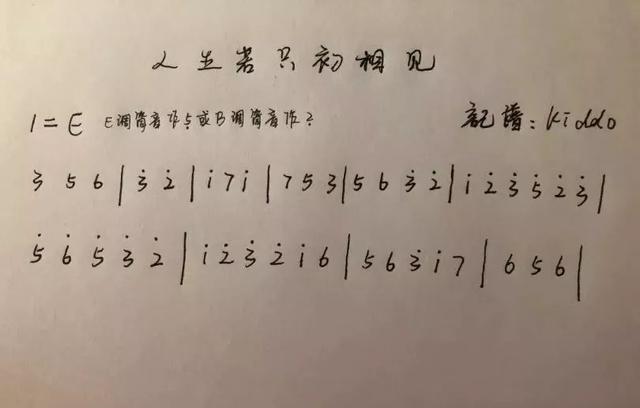 人生若只初相见
1=E E调箫音作5̣或B调箫音作2̣ 記谱:Kiddo
3 5 6 | 3̇ 2̇ | 1̇ 7 1̇ | 7 5 3 | 5 6 3̇ 2̇ | 1̇ 2̇ 3̇ 5̇ 2̇ 3̇ |
5̇ 6̇ 5̇ 3̇ 2̇ | 1̇ 2̇ 3̇ 2̇ 1̇ 6 | 5 6 3̇ 1̇ 7 | 6 5 6 |